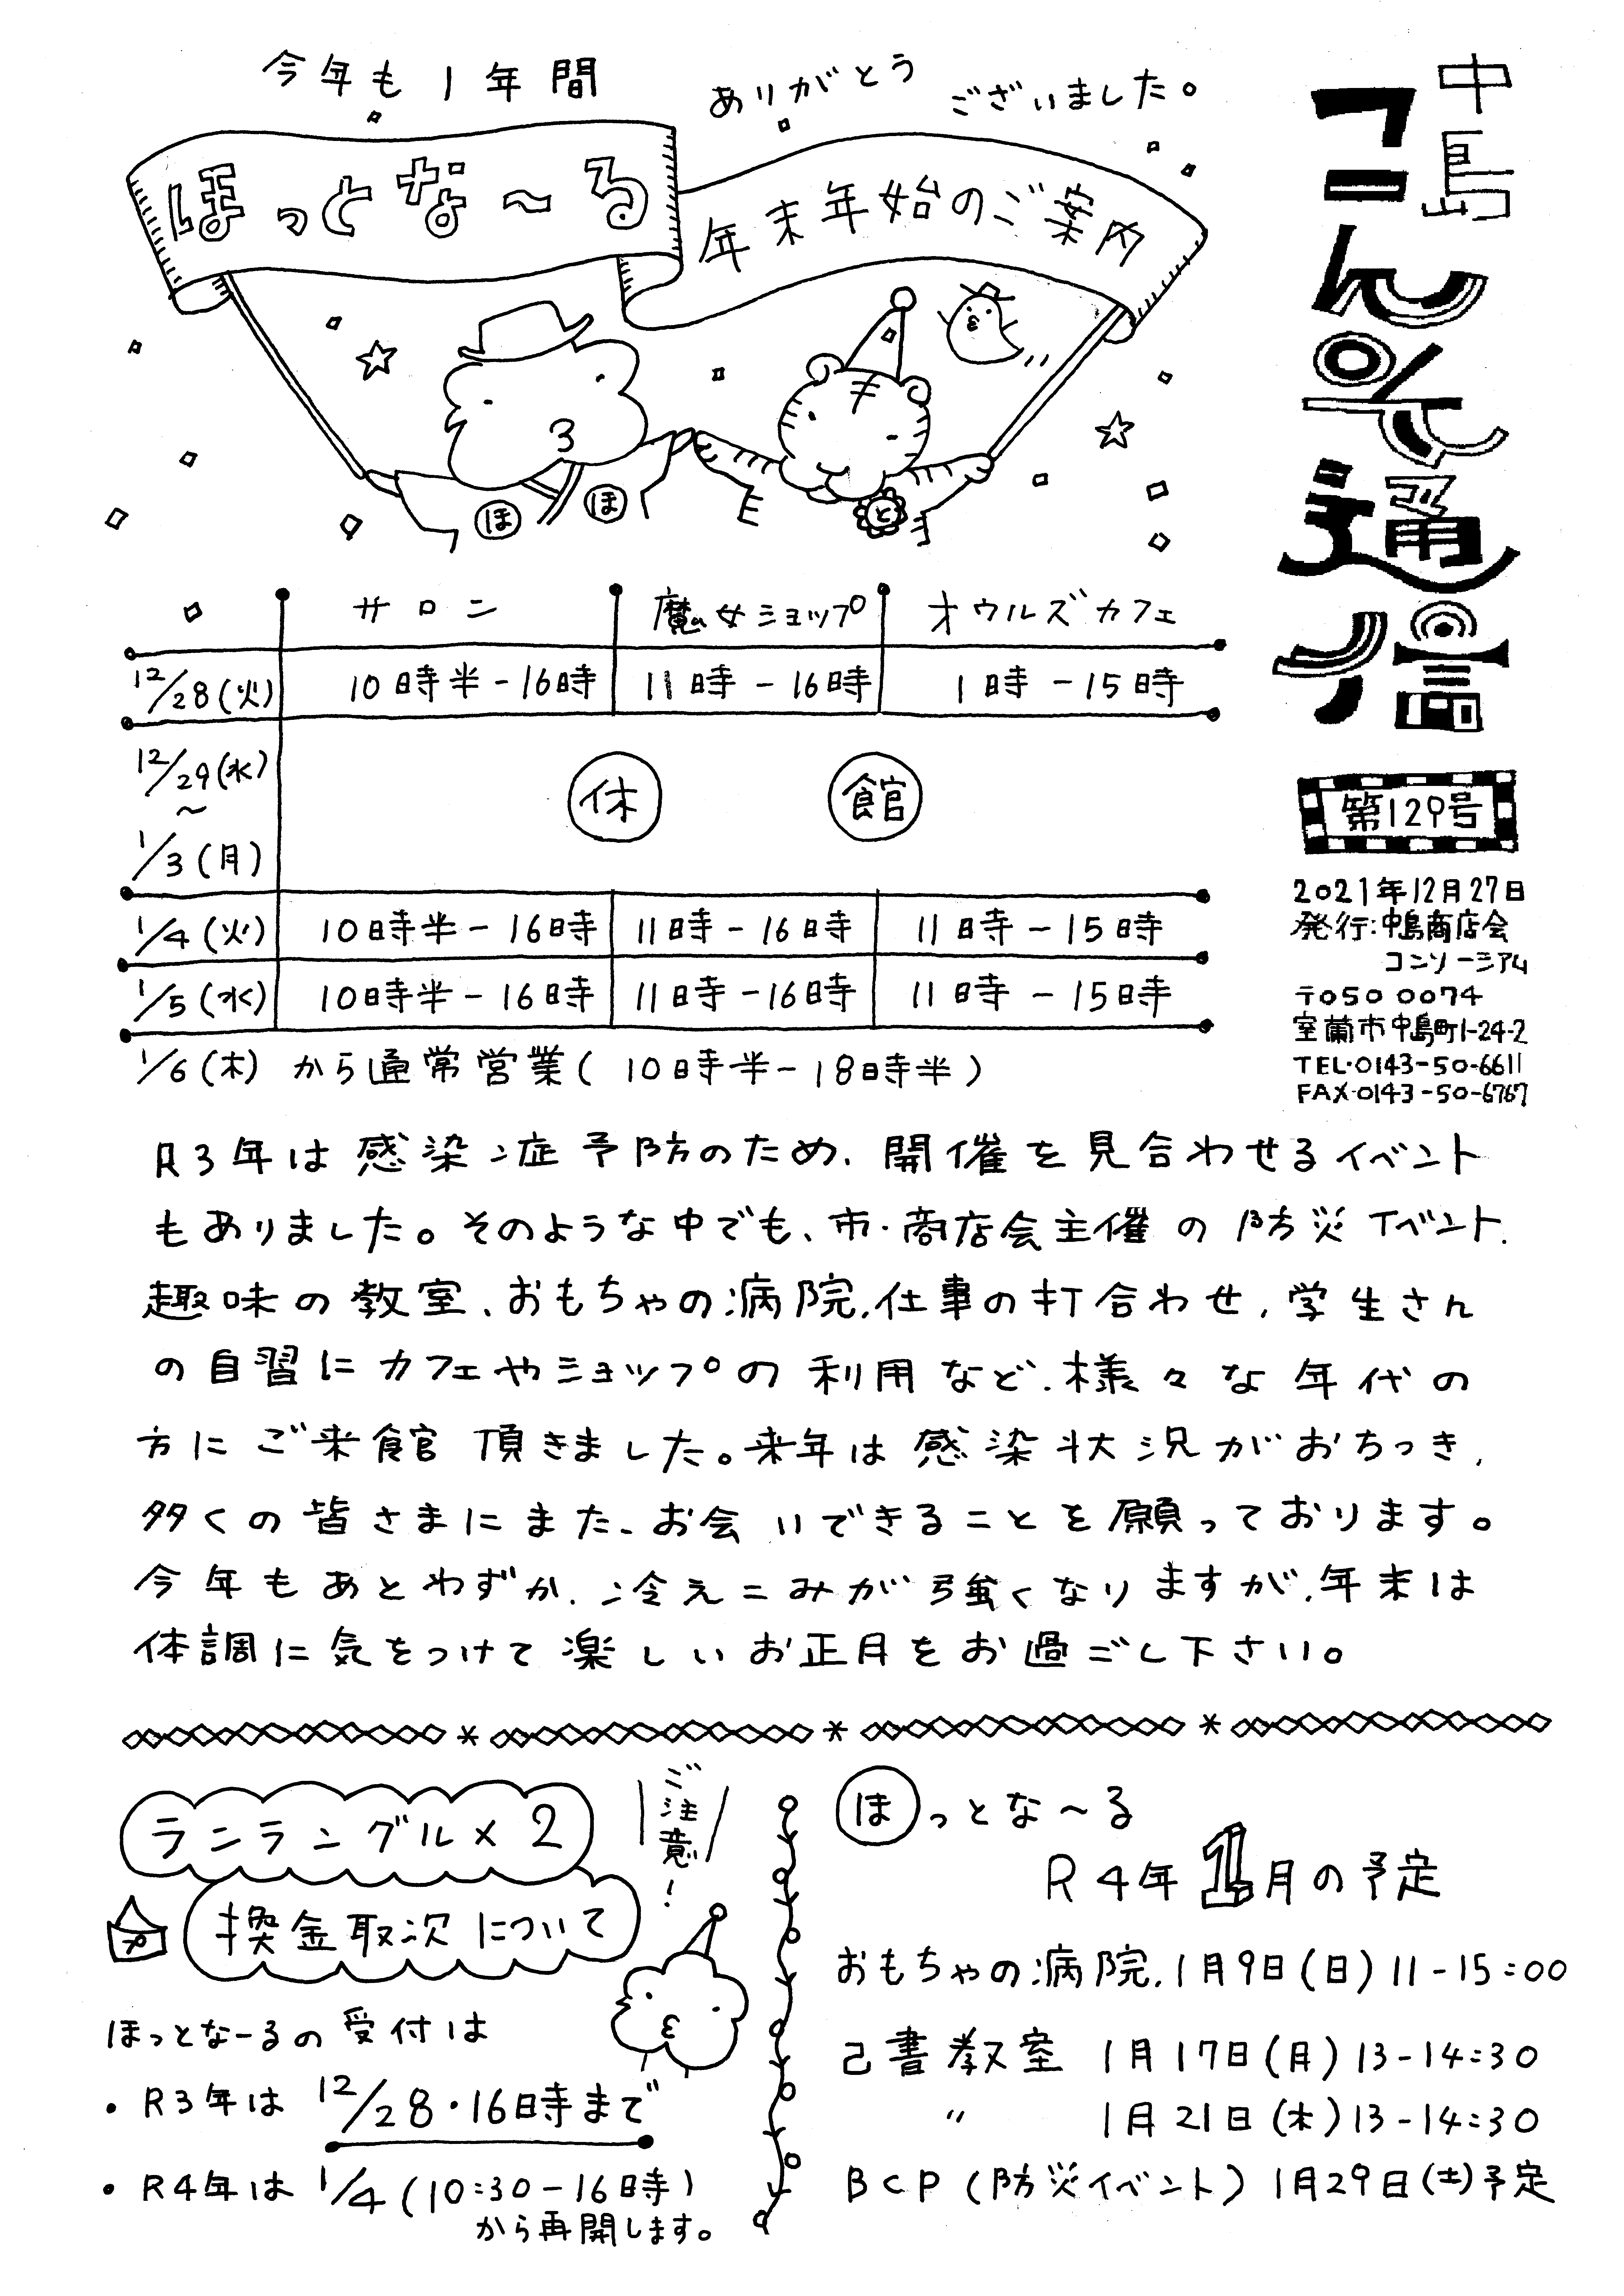 今年も1年間 ありがとう ございました。
ほっとな〜る
年末年始のご案内
ほ ほ と
中島
こんそ通信
第129号
2021年12月27日
発行:中島商店会
コンソーシアム
〒050 0074
室蘭市中島町1-24-2
TEL・0143-50-6611
FAX・0143-50-6767
サロン 魔女ショップ オウルズカフェ
12/28(火) 10時半-16時 11時-16時 1時-15時
12/29(水)
〜 休 館
1/3(月)
1/4(火) 10時半-16時 11時-16時 11時-15時
1/5(水) 10時半-16時 11時-16時 11時-15時
1/6(木)から通常営業(10時半-18時半)
R3年は感染症予防のため、開催を見合わせるイベント
もありました。そのような中でも、市・商店会主催の防災イベント、
趣味の教室、おもちゃの病院、仕事の打合わせ、学生さん
の自習にカフェやショップの利用など、様々な年代の
方にご来館頂きました。来年は感染状況がおちつき、
多くの皆さまにまた、お会いできることを願っております。
今年もあとわずか、冷えこみが強くなりますが、年末は
体調に気をつけて楽しいお正月をお過ごし下さい。
ランラングル×2
換金取次について
ご注意!
ほっとなーるの受付は
・R3年は 12/28・16時まで
・R4年は 1/4(10:30-16時)
から再開します。
ほっとな〜る
R4年1月の予定
おもちゃの病院、1月9日(日)11-15:00
己書教室 1月17日(月)13-14:30
〃 1月21日(木)13-14:30
BCP(防災イベント)1月29日(土)予定